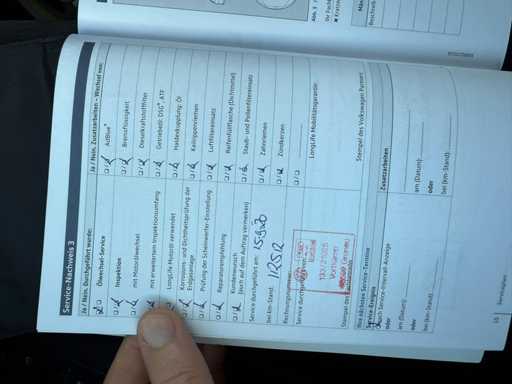 Service-Nachweis 3
Ja / Nein. Durchgeführt wurde:
Ölwechsel-Service
Inspektion
mit Motorölwechsel
mit erweitertem Inspektionsumfang
LongLife Motoröl verwendet
Korrosions- und Dichtheitsprüfung der
Erdgasanlage
Prüfung der Scheinwerfer-Einstellung
Reparaturempfehlung
Kundenwunsch
(auch auf dem Auftrag vermerken)
Service durchgeführt am:
bei km-Stand: 112512
Rechnungsnummer:
Service durchgeführt
Stempel des
Ihre nächsten Service-Termine
Service-Ereignis
nach Service-Intervall-Anzeige
oder
am (Datum):
oder
bei (km-Stand):
Ja / Nein. Zusatzarbeiten – Wechsel von:
AdBlue®
Bremsflüssigkeit
Dieselkraftstofffilter
Getriebeöl: DSG®, ATF
Haldexkupplung: Öl
Keilrippenriemen
Luftfiltereinsatz
Reifenfüllflasche (Dichtmittel)
Staub- und Pollenfiltereinsatz
Zahnriemen
Zündkerzen
LongLife Mobilitätsgarantie:
Stempel des Volkswagen Partners
Zusatzarbeiten
am (Datum):
oder
bei (km-Stand):